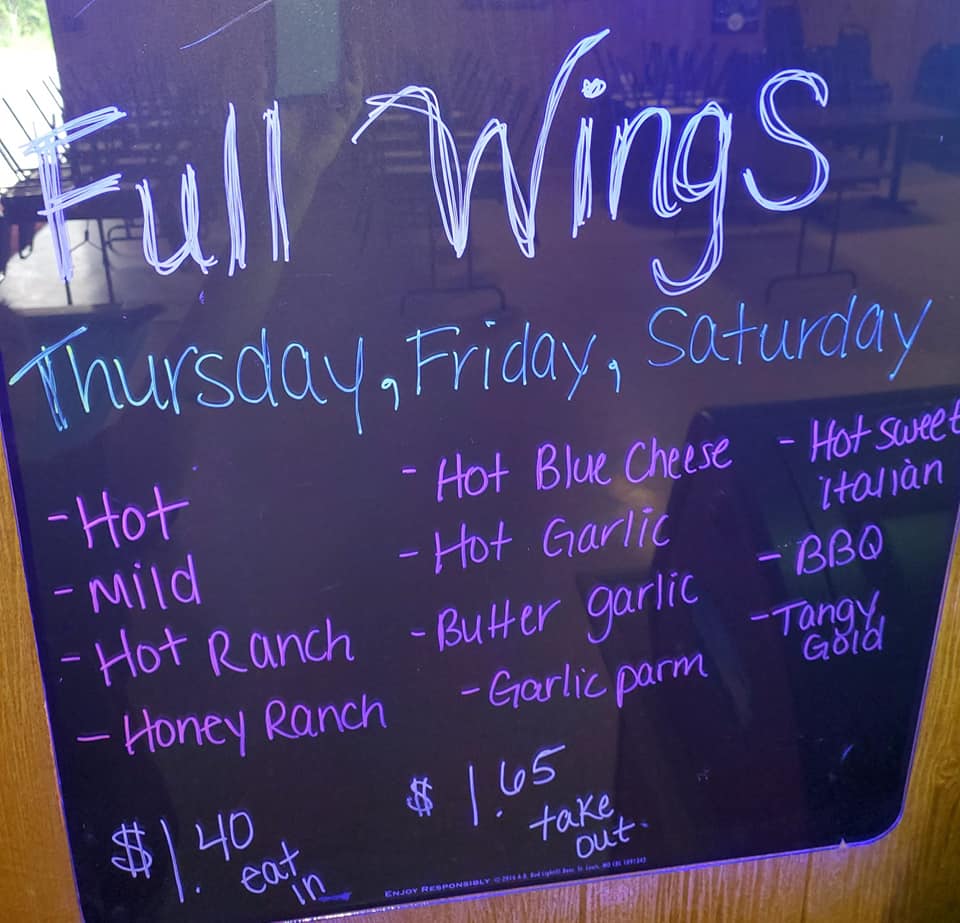 Full Wings
Thursday, Friday, Saturday
- Hot
- Mild
- Hot Ranch
- Honey Ranch
- Hot Blue Cheese
- Hot Garlic
- Butter garlic
- Garlic parm
- Hot sweet
italian
- BBQ
- Tangy
Gold
$1.40
eat
in
$1.65
take
out.
ENJOY RESPONSIBLY